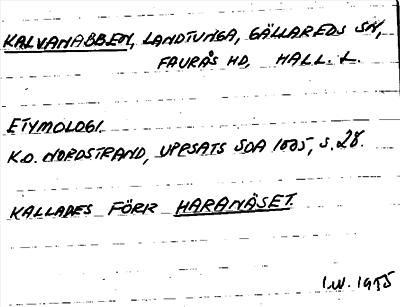 KALVANABBEN, LANDTUNGA, GÄLLAREDS SN,
FAURÅS HD, HALL. L.
ETYMOLOGI.
K.O. NORDSTRAND, UPPSATS SOA 1005, S. 28.
KALLADES FÖRR HARANÄSET.
I.W. 1955